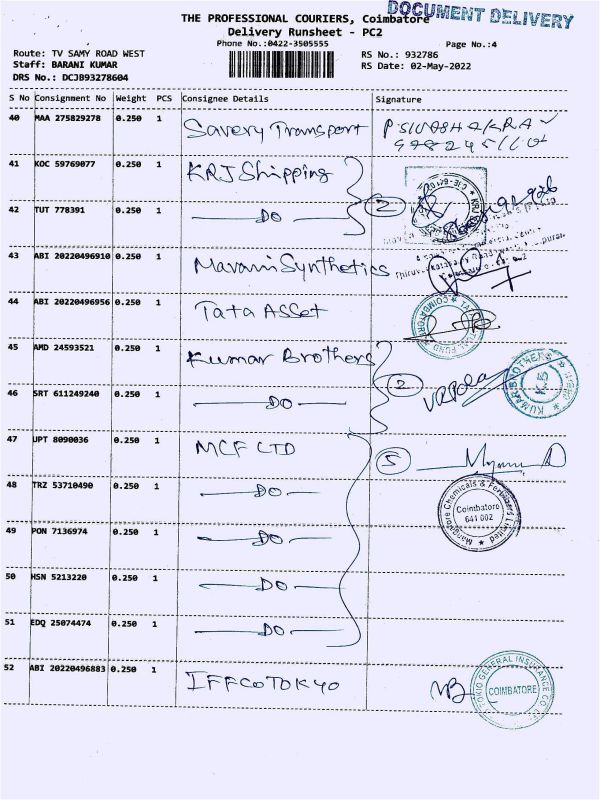 THE PROFESSIONAL COURIERS, Coimbatore
DOCUMENT DELIVERY
Delivery Runsheet - PC2
Phone No.:0422-3505555
Page No.:4
Route: TV SAMY ROAD WEST
RS No.: 932786
Staff: BARANI KUMAR
RS Date: 02-May-2022
DRS No.: DCJB93278604
S No Consignment No Weight PCS Consignee Details Signature
40 MAA 275829278 0.250 1 Savery Transport
41 KOC 59769077 0.250 1 KRJ Shipping
42 TUT 778391 0.250 1 DO 2
43 ABI 20220496910 0.250 1 Marani Synthetics
44 ABI 20220496956 0.250 1 Tata Asset
45 AMD 24593521 0.250 1 Kumar Brothers
KUMAR BROTHERS
46 SRT 611249240 0.250 1 DO 2
47 UPT 8090036 0.250 1 MCF LTD 5
48 TRZ 53710490 0.250 1 DO
Mangalore Chemicals & Fertilizers Limited
Coimbatore
641 002
49 PON 7136974 0.250 1 DO
50 HSN 5213220 0.250 1 DO
51 EDQ 25074474 0.250 1 DO
52 ABI 20220496883 0.250 1 IFFCO TOKYO
TOKIO GENERAL INSURANCE CO
COIMBATORE